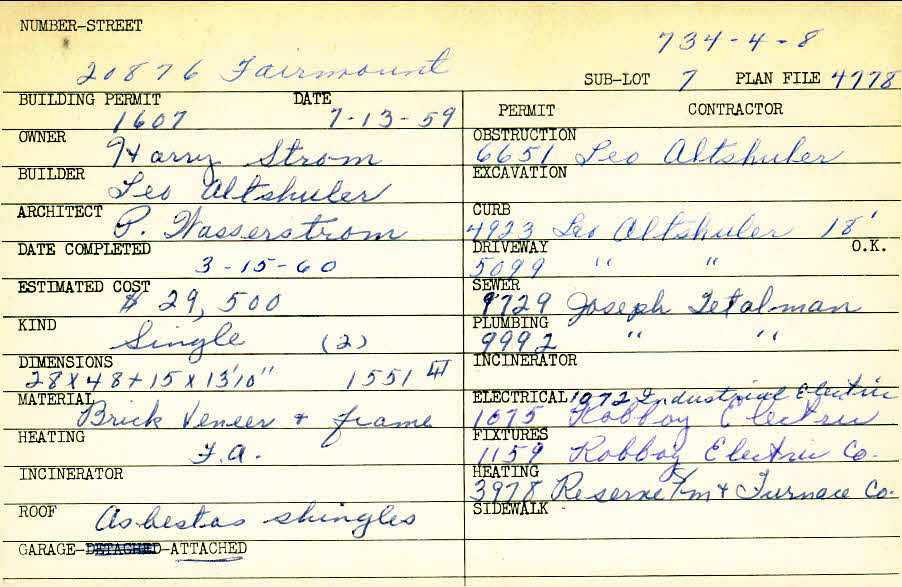 NUMBER-STREET
734-4-8
20876 Fairmount
SUB-LOT 7 PLAN FILE 4778
BUILDING PERMIT DATE
1607 7-13-59
OWNER
Harry Strom
BUILDER
Leo Altshuler
ARCHITECT
P. Wasserstrom
DATE COMPLETED
3-15-60
ESTIMATED COST
$ 29,500
KIND
Single (2)
DIMENSIONS
28 x 48 + 15 x 13'10" 1551
MATERIAL
Brick Veneer + frame
HEATING
F.A.
INCINERATOR
ROOF Asbestos shingles
GARAGE-DETACHED-ATTACHED
PERMIT CONTRACTOR
OBSTRUCTION
6651 Leo Altshuler
EXCAVATION
CURB
4923 Leo Altshuler 18'
DRIVEWAY O.K.
5099 " "
SEWER
9729 Joseph Tetalman
PLUMBING
9992 " "
INCINERATOR
ELECTRICAL 1072 Industrial Electric
1075 Robboy Electric
FIXTURES
1159 Robboy Electric Co.
HEATING
3978 Reserve + Furnace Co.
SIDEWALK